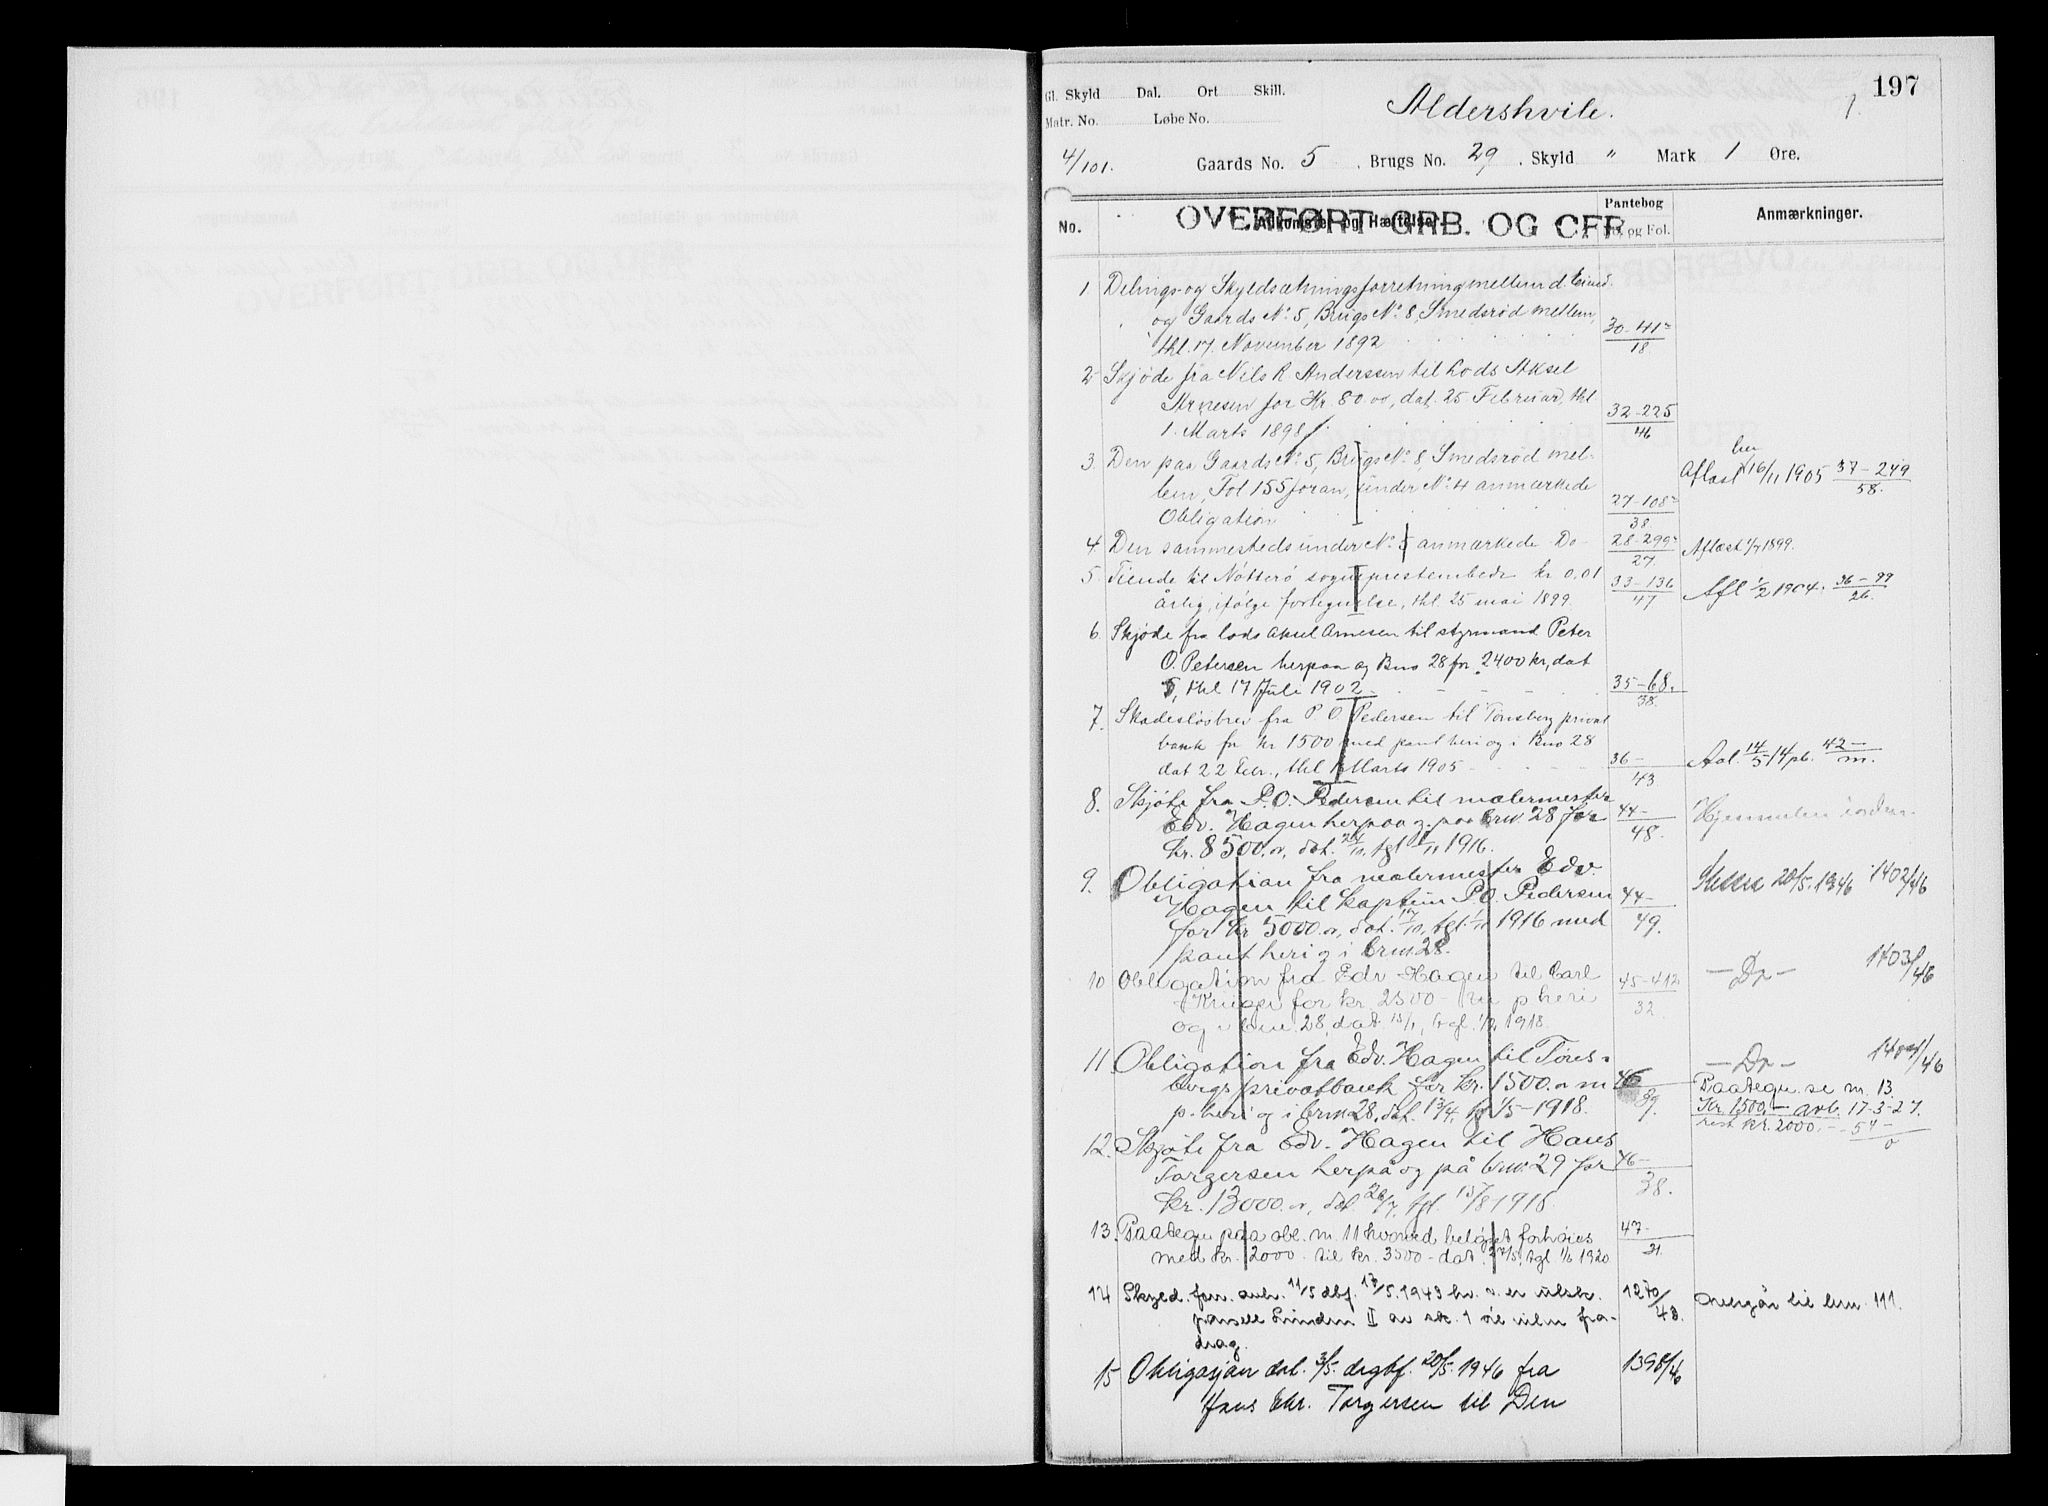 197
Gl. Skyld Dal. Ort Skill.
Aldershvile. 1.
Matr. No. Løbe No.
4/101. Gaards No. 5. Brugs No. 29. Skyld " Mark 1 Øre.
No. Adkomster og Hæftelser. Pantebog No. og Fol. Anmærkninger.
OVERFØRT GRB. OG CFR
1. Delings- og Skyldsætningsforretning mellem d. Eiend.
og Gaards No. 5, Brugs No. 8, Smedsrød mellem, 30-412
thl. 17. November 1892 18.
2 Skjøde fra Nils R Anderssen til Lods Aksel
Arnesen for Kr. 80.00, dat. 25 Februar, thl 32-225
1. Marts 1898 46
3. Den paa Gaards No. 5, Brugs No. 8, Smedsrød mel-
lem, Fol 155 foran, under No. 4 anmærkede 27-108 Aflæst 16/11 1905 37-249
Obligation 38. 58.
4. Den sammesteds under No. 5 anmærkede Do 28-299 Aflæst 1/7 1899.
27.
5. Tiende til Nøtterø sogneprestembede kr 0,01 33-136 Afl 1/2 1904. 36-99
årlig, ifølge fortegnelse, thl. 25 mai 1899. 47 26.
6. Skjøde fra lods Aksel Arnesen til styrmand Peter
O. Petersen herpaa og Bno 28 for 2400 kr, dat
5, thl 17 Juli 1902 35-68.
38.
7. Skadesløsbrev fra P. O. Pedersen til Tønsberg privat
bank for kr 1500 med pant heri og i Bno 28 36-
dat 22 Febr., thl 1 Marts 1905 43 Avl. 14/5 14 pb. 42-
8. Skjøte fra P. O. Pedersen til malermester 44- Hjemmelen i orden.
Edv. Hagen herpaa og paa brno. 28 for 48.
kr. 8500.00, dat. 24/10, tgl 1/11 1916.
9. Obligation fra malermester Edv. Slettet 20/5. 1946 1402/46
Hagen til kaptein P. O. Pedersen 44-
for kr 5000.00, dat. 17/10, tgl. 1/11 1916 med 49.
pant heri og i brno. 28.
10 Obligation fra Edv Hagen til Carl 45-412 - Do - 1403/46
for kr. 2500 - m p heri 32.
og i bno. 28, dat 15/1, tgl. 1918.
11. Obligation fra Edv. Hagen til Tøns- - Do - 1404/46
bergs privatbank for kr. 1500.00 m 46 Paategn. se nr. 13
p. heri og i brno. 28, dat. 13/4, tgl 1/5-1918. 39. Kr. 1500,- avl. 17-3-27.
rest kr. 2000.- 54-
12. Skjøte fra Edv. Hagen til Hans
Torgersen herpå og på brno. 29 for 46-
kr. 13000.00, dat. 26/7, tgl. 15/8 1918. 38.
13. Paategn paa obl. nr. 11 hvorved beløpet forhøies 47-
med kr. 2000.- til kr. 3500- dat. 27/5, tgl 1/6 1920 21.
14 Skyld. forr. avh. 11/5 dbf. 13/5. 1943 hv. v. er utsk. 1270/43. Overgår til bnr. 111.
parsell Linden II av sk. 1 øre uten fra-
drag.
15 Obligasjon dat. 3/5. dagbf. 20/5. 1946 fra 1398/46
Hans Chr. Torgersen til Den